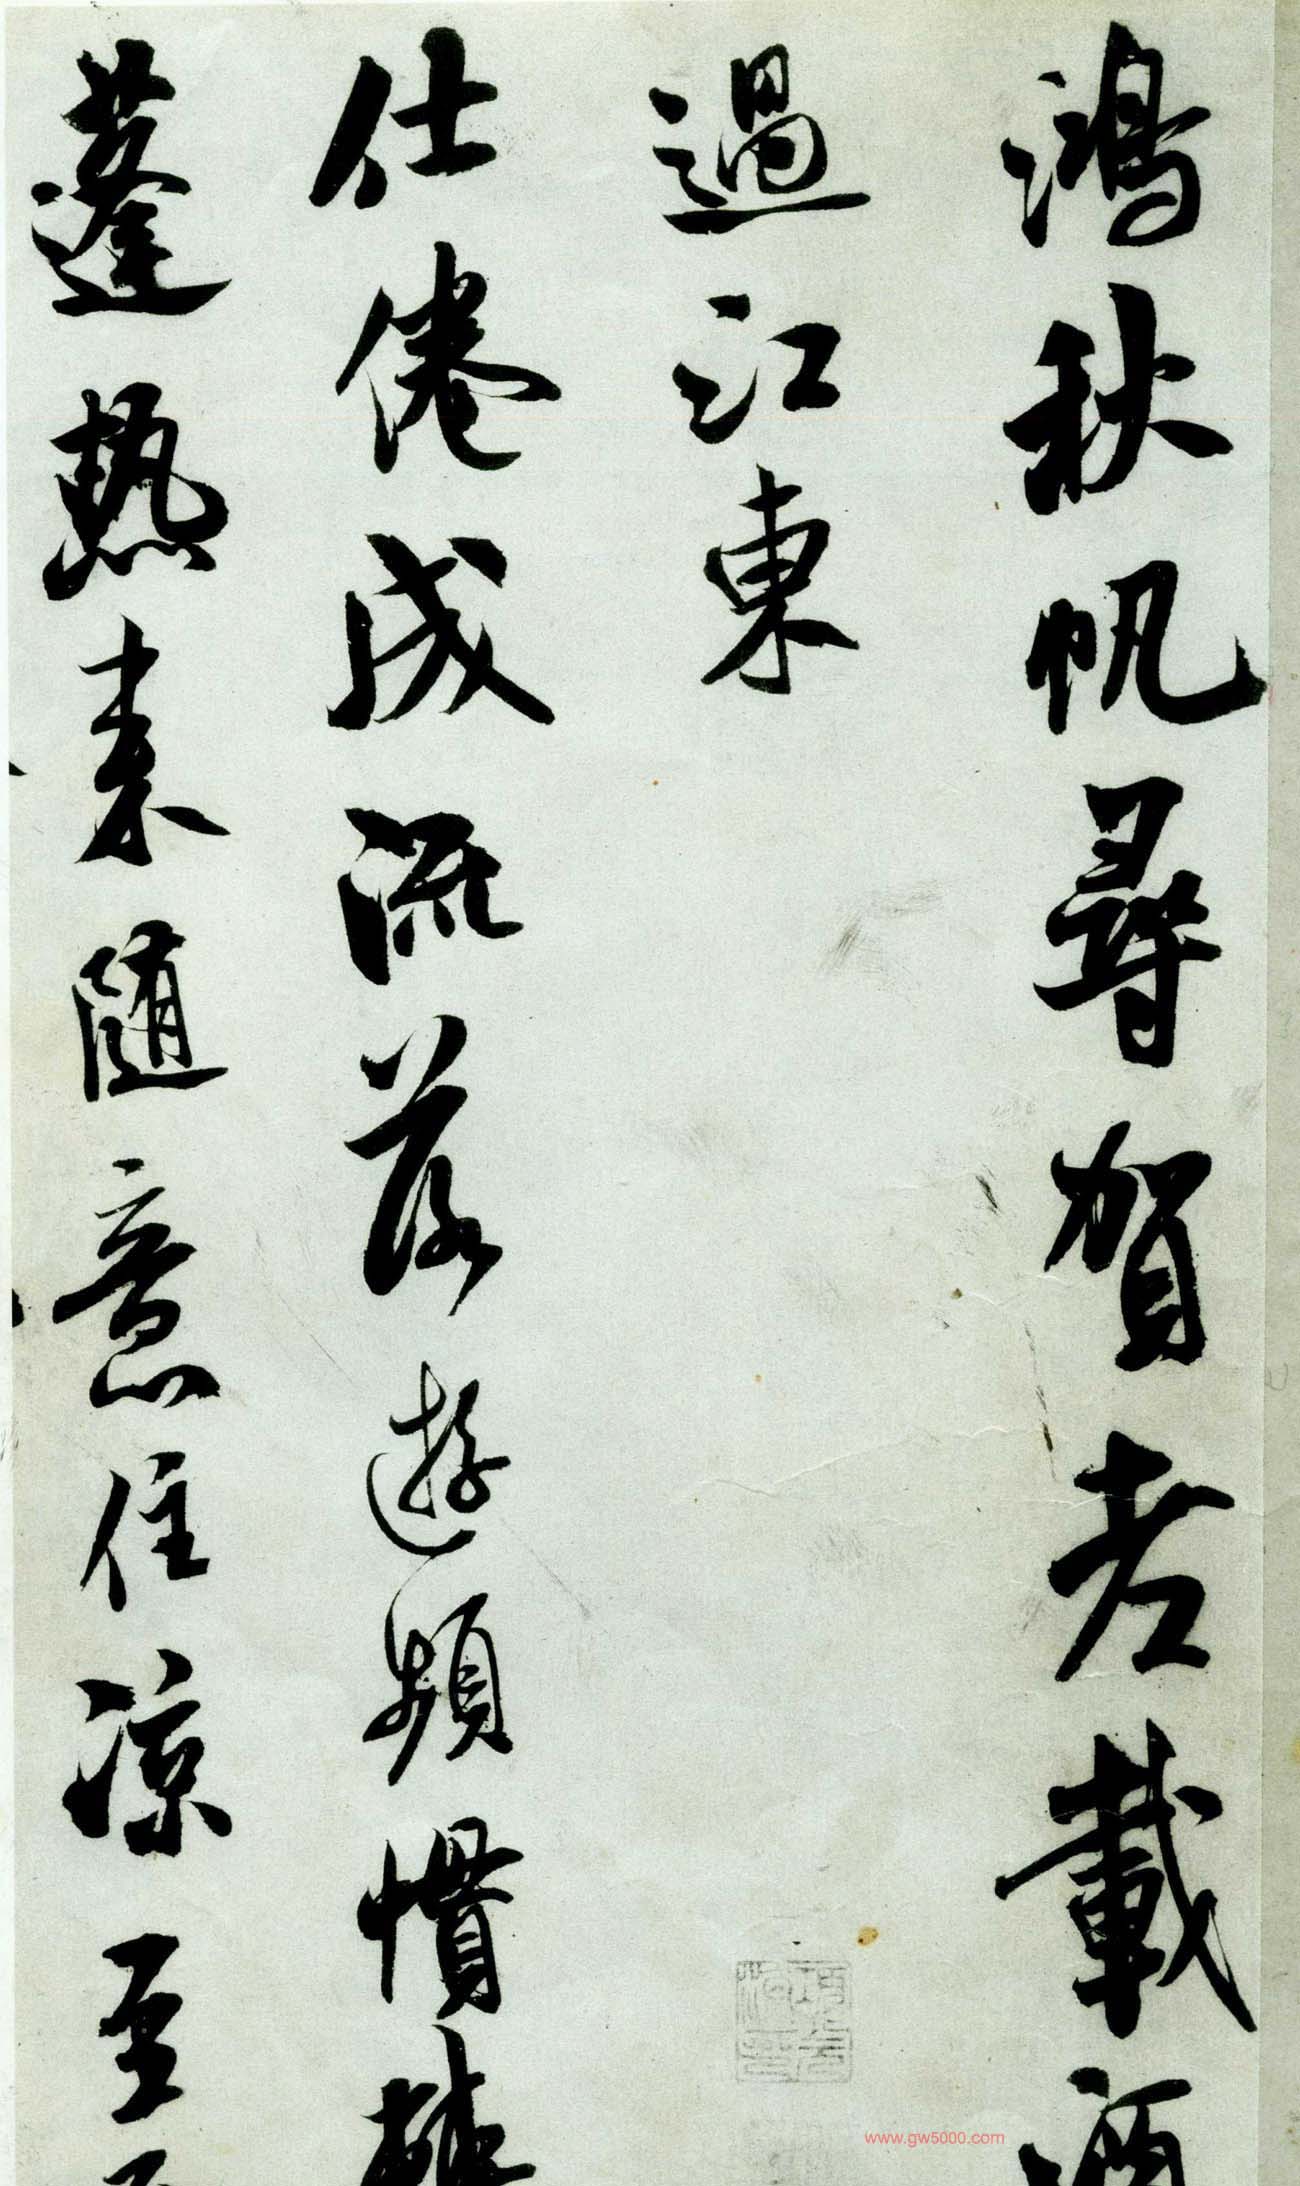 鴻秋帆尋賀老載酒
過江東
仕倦成流落遊頻慣轉
蓬熱来随意住涼至
www.gw5000.com